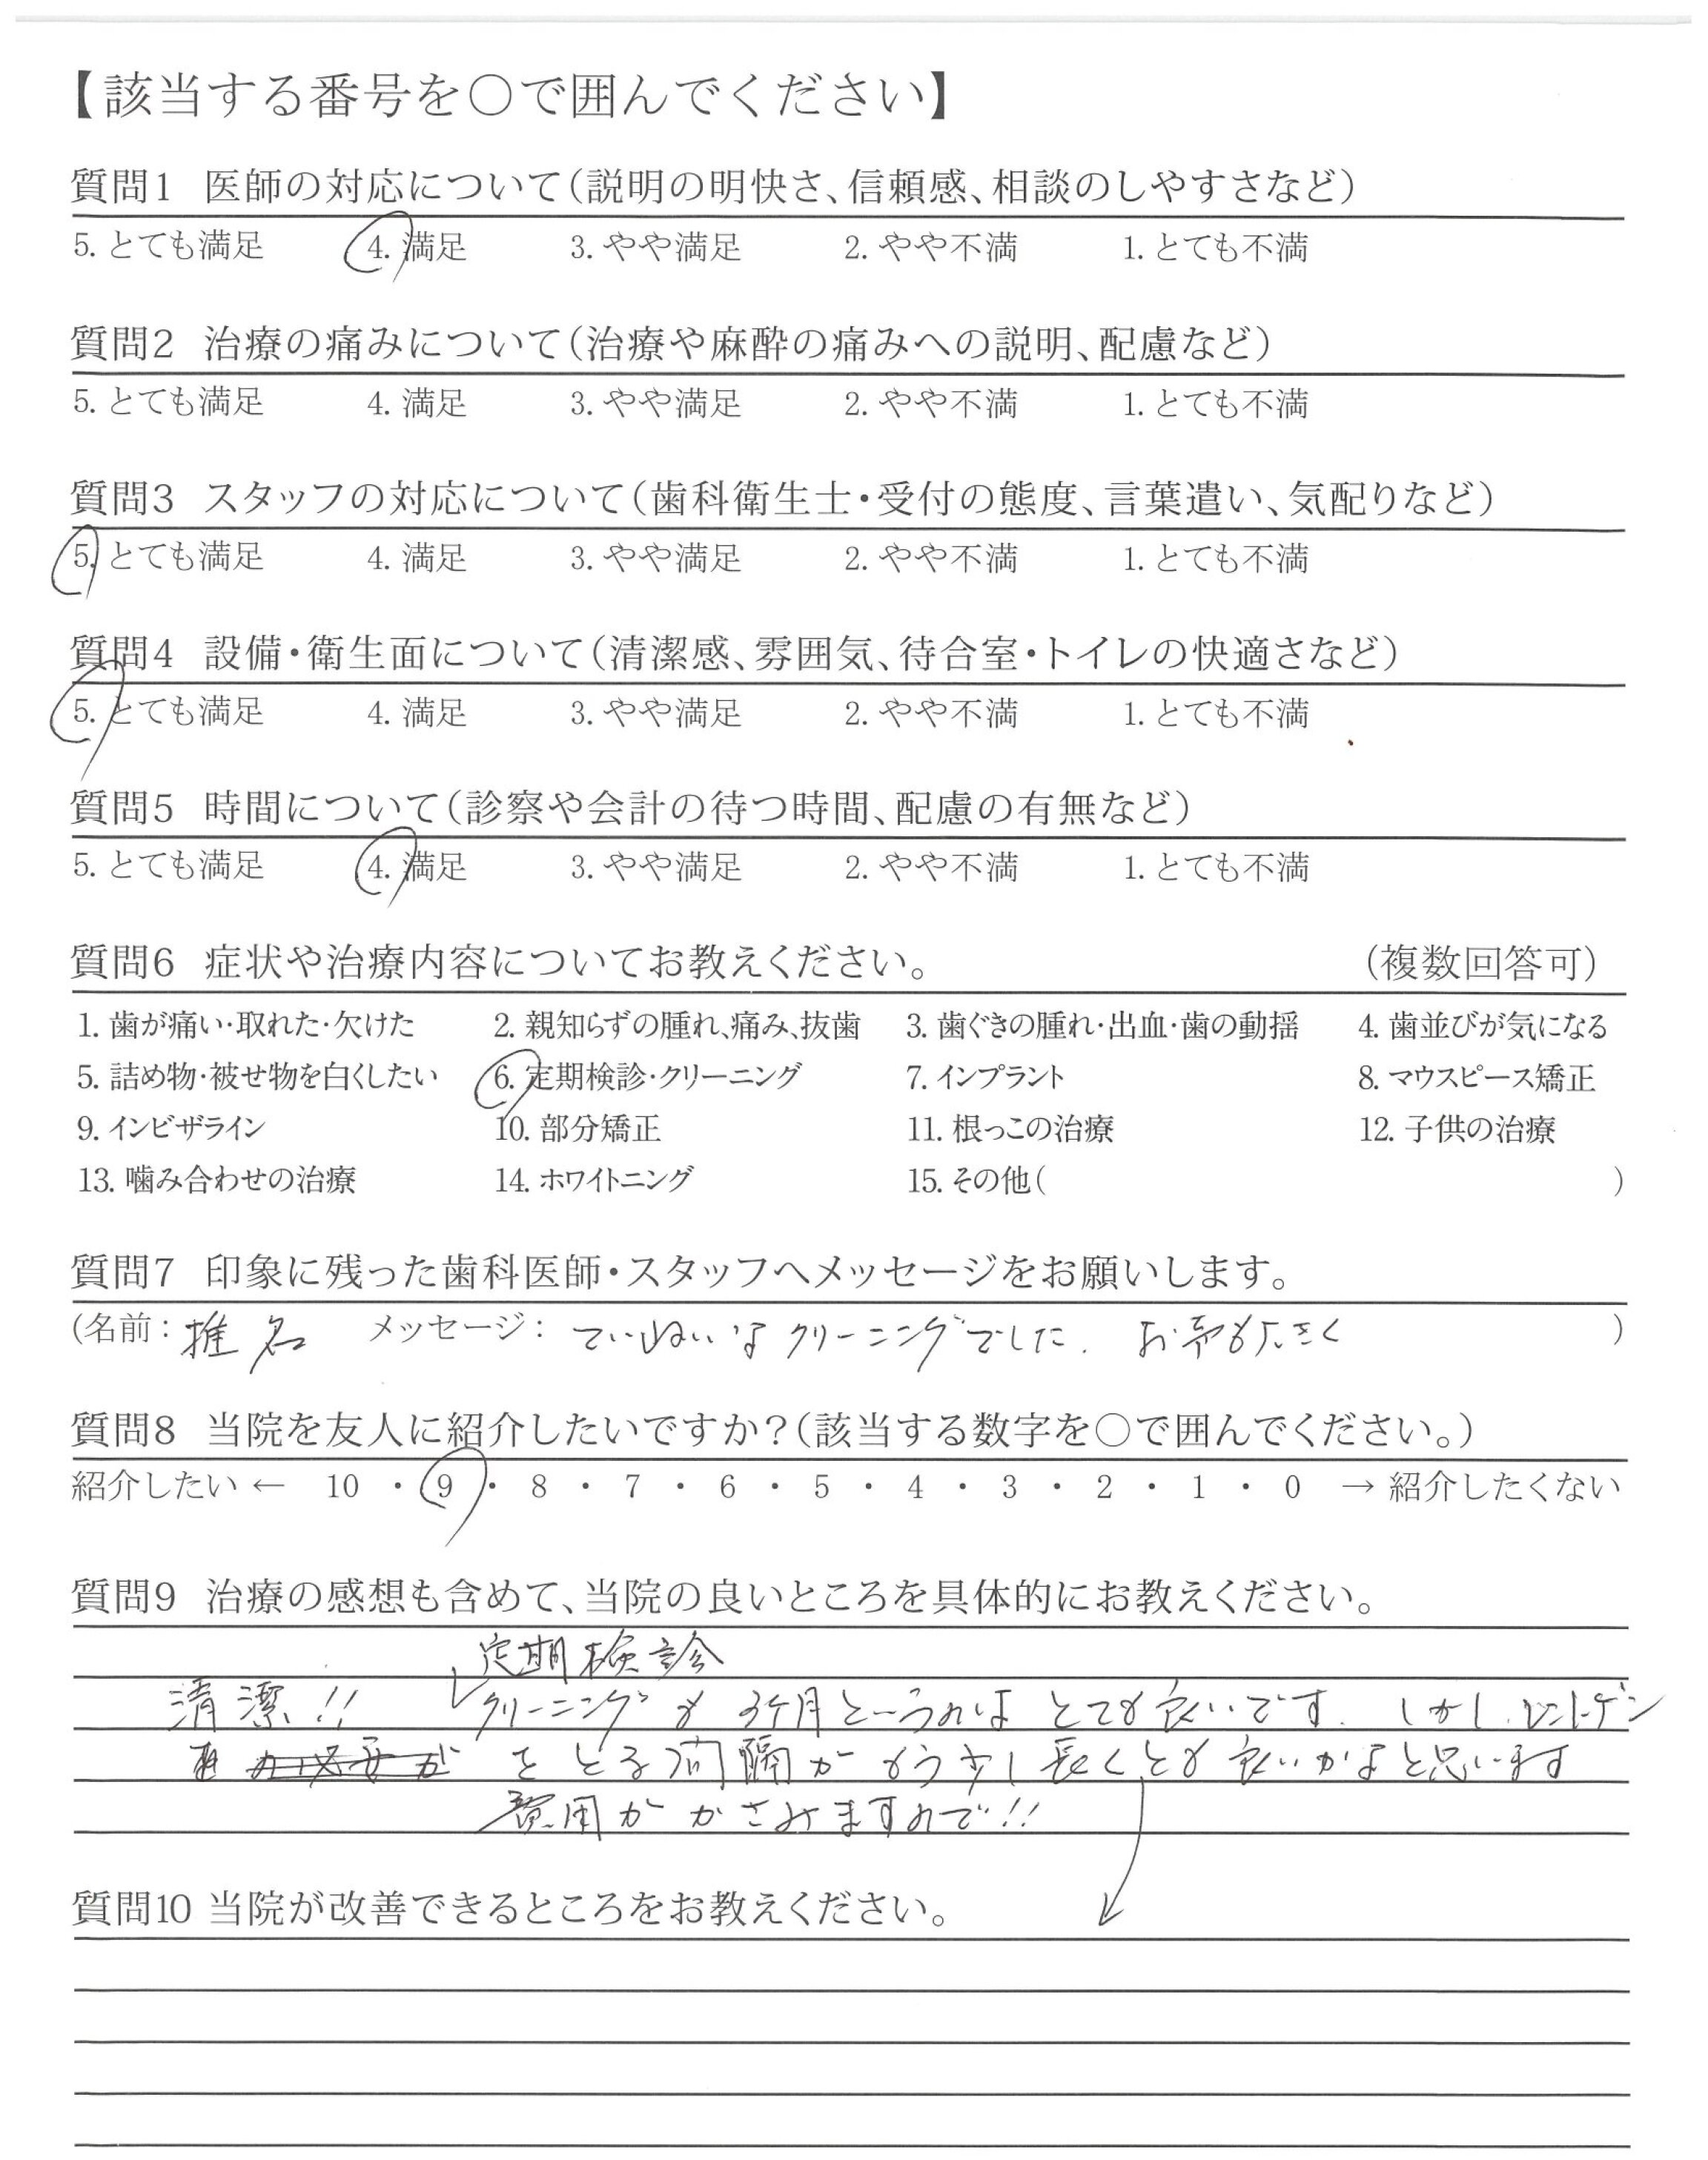 【該当する番号を○で囲んでください】
質問1 医師の対応について(説明の明快さ、信頼感、相談のしやすさなど)
5. とても満足 4. 満足 3. やや満足 2. やや不満 1. とても不満
質問2 治療の痛みについて(治療や麻酔の痛みへの説明、配慮など)
5. とても満足 4. 満足 3. やや満足 2. やや不満 1. とても不満
質問3 スタッフの対応について(歯科衛生士・受付の態度、言葉遣い、気配りなど)
5. とても満足 4. 満足 3. やや満足 2. やや不満 1. とても不満
質問4 設備・衛生面について(清潔感、雰囲気、待合室・トイレの快適さなど)
5. とても満足 4. 満足 3. やや満足 2. やや不満 1. とても不満
質問5 時間について(診察や会計の待つ時間、配慮の有無など)
5. とても満足 4. 満足 3. やや満足 2. やや不満 1. とても不満
質問6 症状や治療内容についてお教えください。 (複数回答可)
1. 歯が痛い・取れた・欠けた 2. 親知らずの腫れ、痛み、抜歯 3. 歯ぐきの腫れ・出血・歯の動揺 4. 歯並びが気になる
5. 詰め物・被せ物を白くしたい 6. 定期検診・クリーニング 7. インプラント 8. マウスピース矯正
9. インビザライン 10. 部分矯正 11. 根っこの治療 12. 子供の治療
13. 噛み合わせの治療 14. ホワイトニング 15. その他( )
質問7 印象に残った歯科医師・スタッフへメッセージをお願いします。
(名前: 椎名 メッセージ: ていねいなクリーニングでした. お声も大きく )
質問8 当院を友人に紹介したいですか?(該当する数字を○で囲んでください。)
紹介したい ← 10 ・ 9 ・ 8 ・ 7 ・ 6 ・ 5 ・ 4 ・ 3 ・ 2 ・ 1 ・ 0 → 紹介したくない
質問9 治療の感想も含めて、当院の良いところを具体的にお教えください。
定期検診
清潔!! クリーニングも 3ケ月と うのは とても良いです. しかし、レントゲン
をとる間隔がもう少し長くとも良いかなと思います
費用がかさみますので!!
質問10 当院が改善できるところをお教えください。